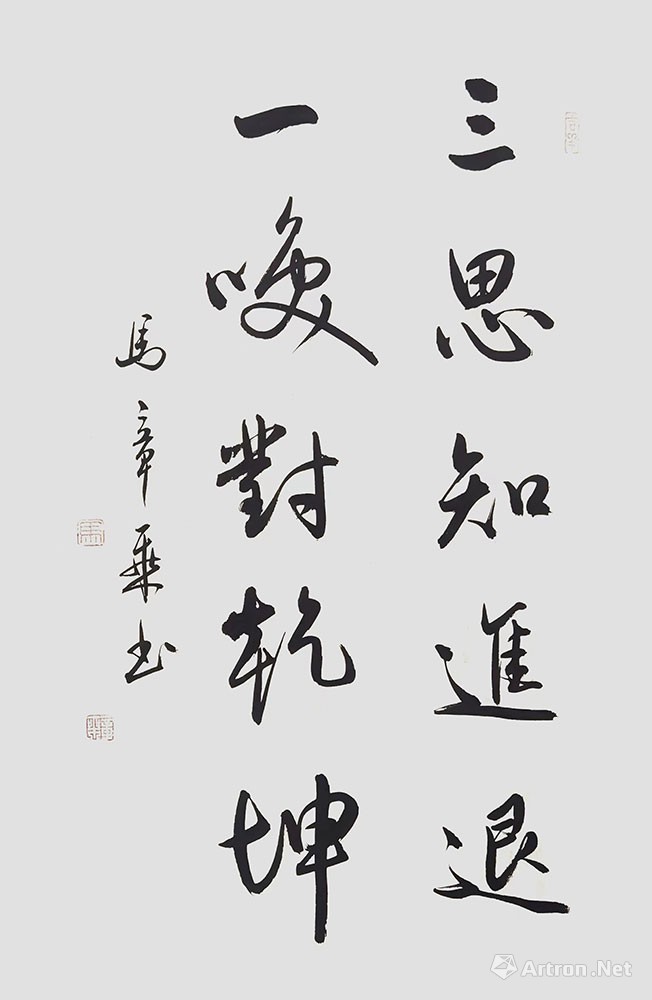 三思知進退
一唤對乾坤
馬章乘书
Artron.Net